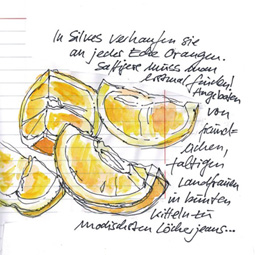 In Silves verkaufen sie
an jeder Ecke Orangen.
Saftigere muss man
erstmal finden!
Angeboten
von
faltigen
Landfrauen
in bunten
Kitteln zu
modischsten Löcherjeans...